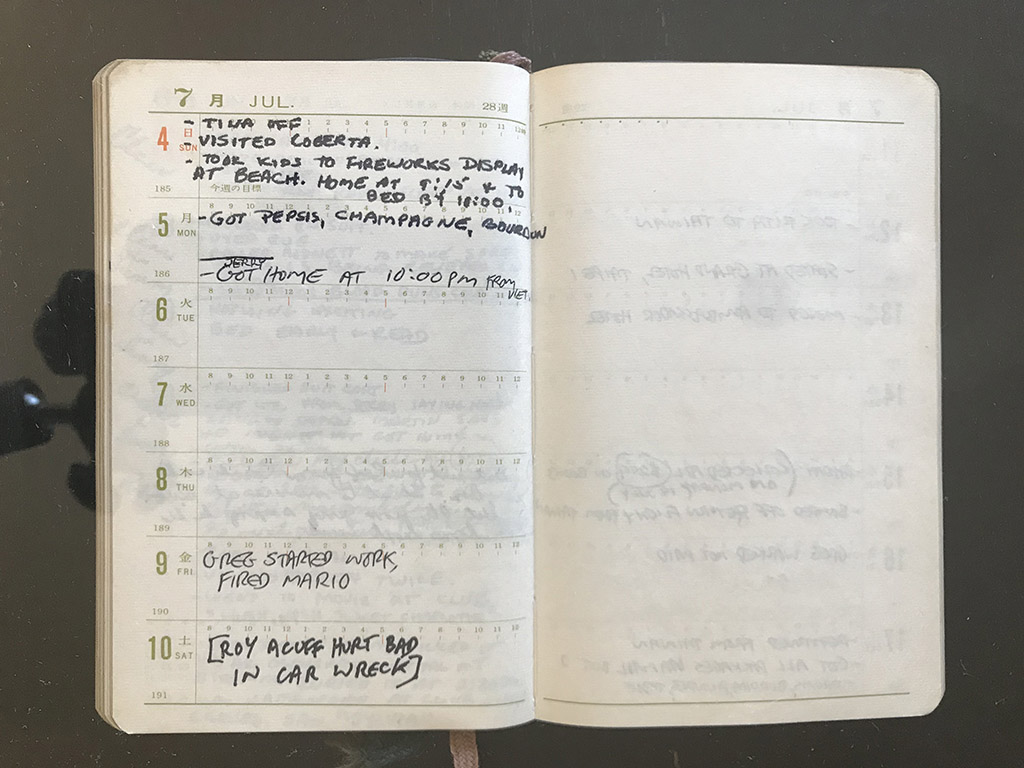 7 月 JUL. 28週
8 9 10 11 12 1 2 3 4 5 6 7 8 9 10 11 12時
4 日 SUN
- TINA OFF
- VISITED COBERTA.
- TOOK KIDS TO FIREWORKS DISPLAY
AT BEACH. HOME AT 9:15 & TO
BED BY 10:00.
185 今週の目標
8 9 10 11 12 1 2 3 4 5 6 7 8 9 10 11 12
5 月 MON
- GOT PEPSIS, CHAMPAGNE, BOURBON
JERRY
- GOT HOME AT 10:00 PM FROM
VIET.
186
8 9 10 11 12 1 2 3 4 5 6 7 8 9 10 11 12
6 火 TUE
187
8 9 10 11 12 1 2 3 4 5 6 7 8 9 10 11 12
7 水 WED
188
8 9 10 11 12 1 2 3 4 5 6 7 8 9 10 11 12
8 木 THU
189
8 9 10 11 12 1 2 3 4 5 6 7 8 9 10 11 12
9 金 FRI
GREG STARTED WORK,
FIRED MARIO
190
8 9 10 11 12 1 2 3 4 5 6 7 8 9 10 11 12
10 土 SAT
[ROY ACUFF HURT BAD
IN CAR WRECK]
191